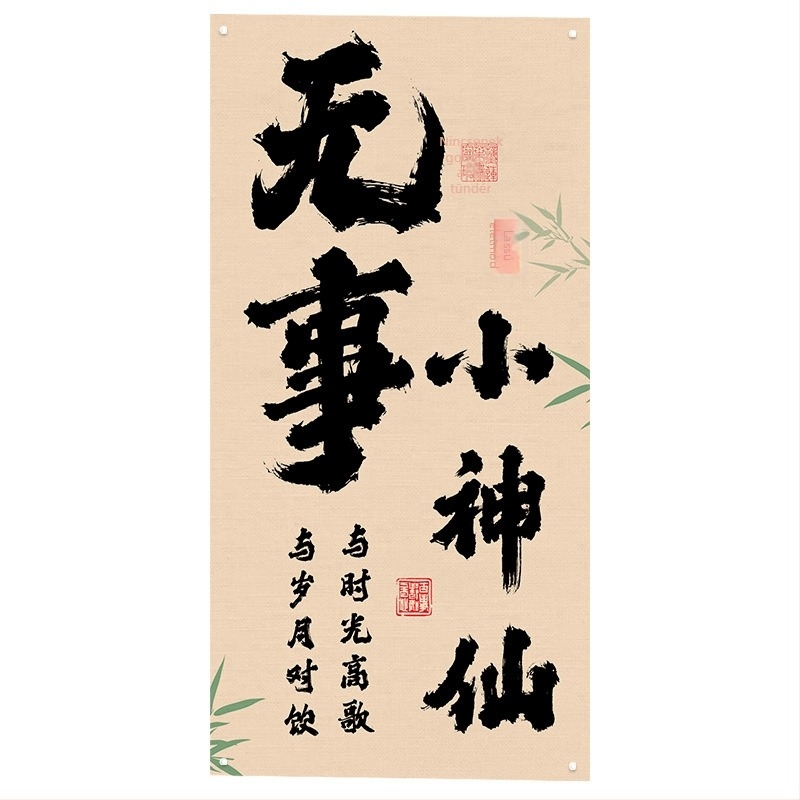 无事
小神仙
与时光高歌
与岁月对饮
Nincsenek
tünder
Lassú